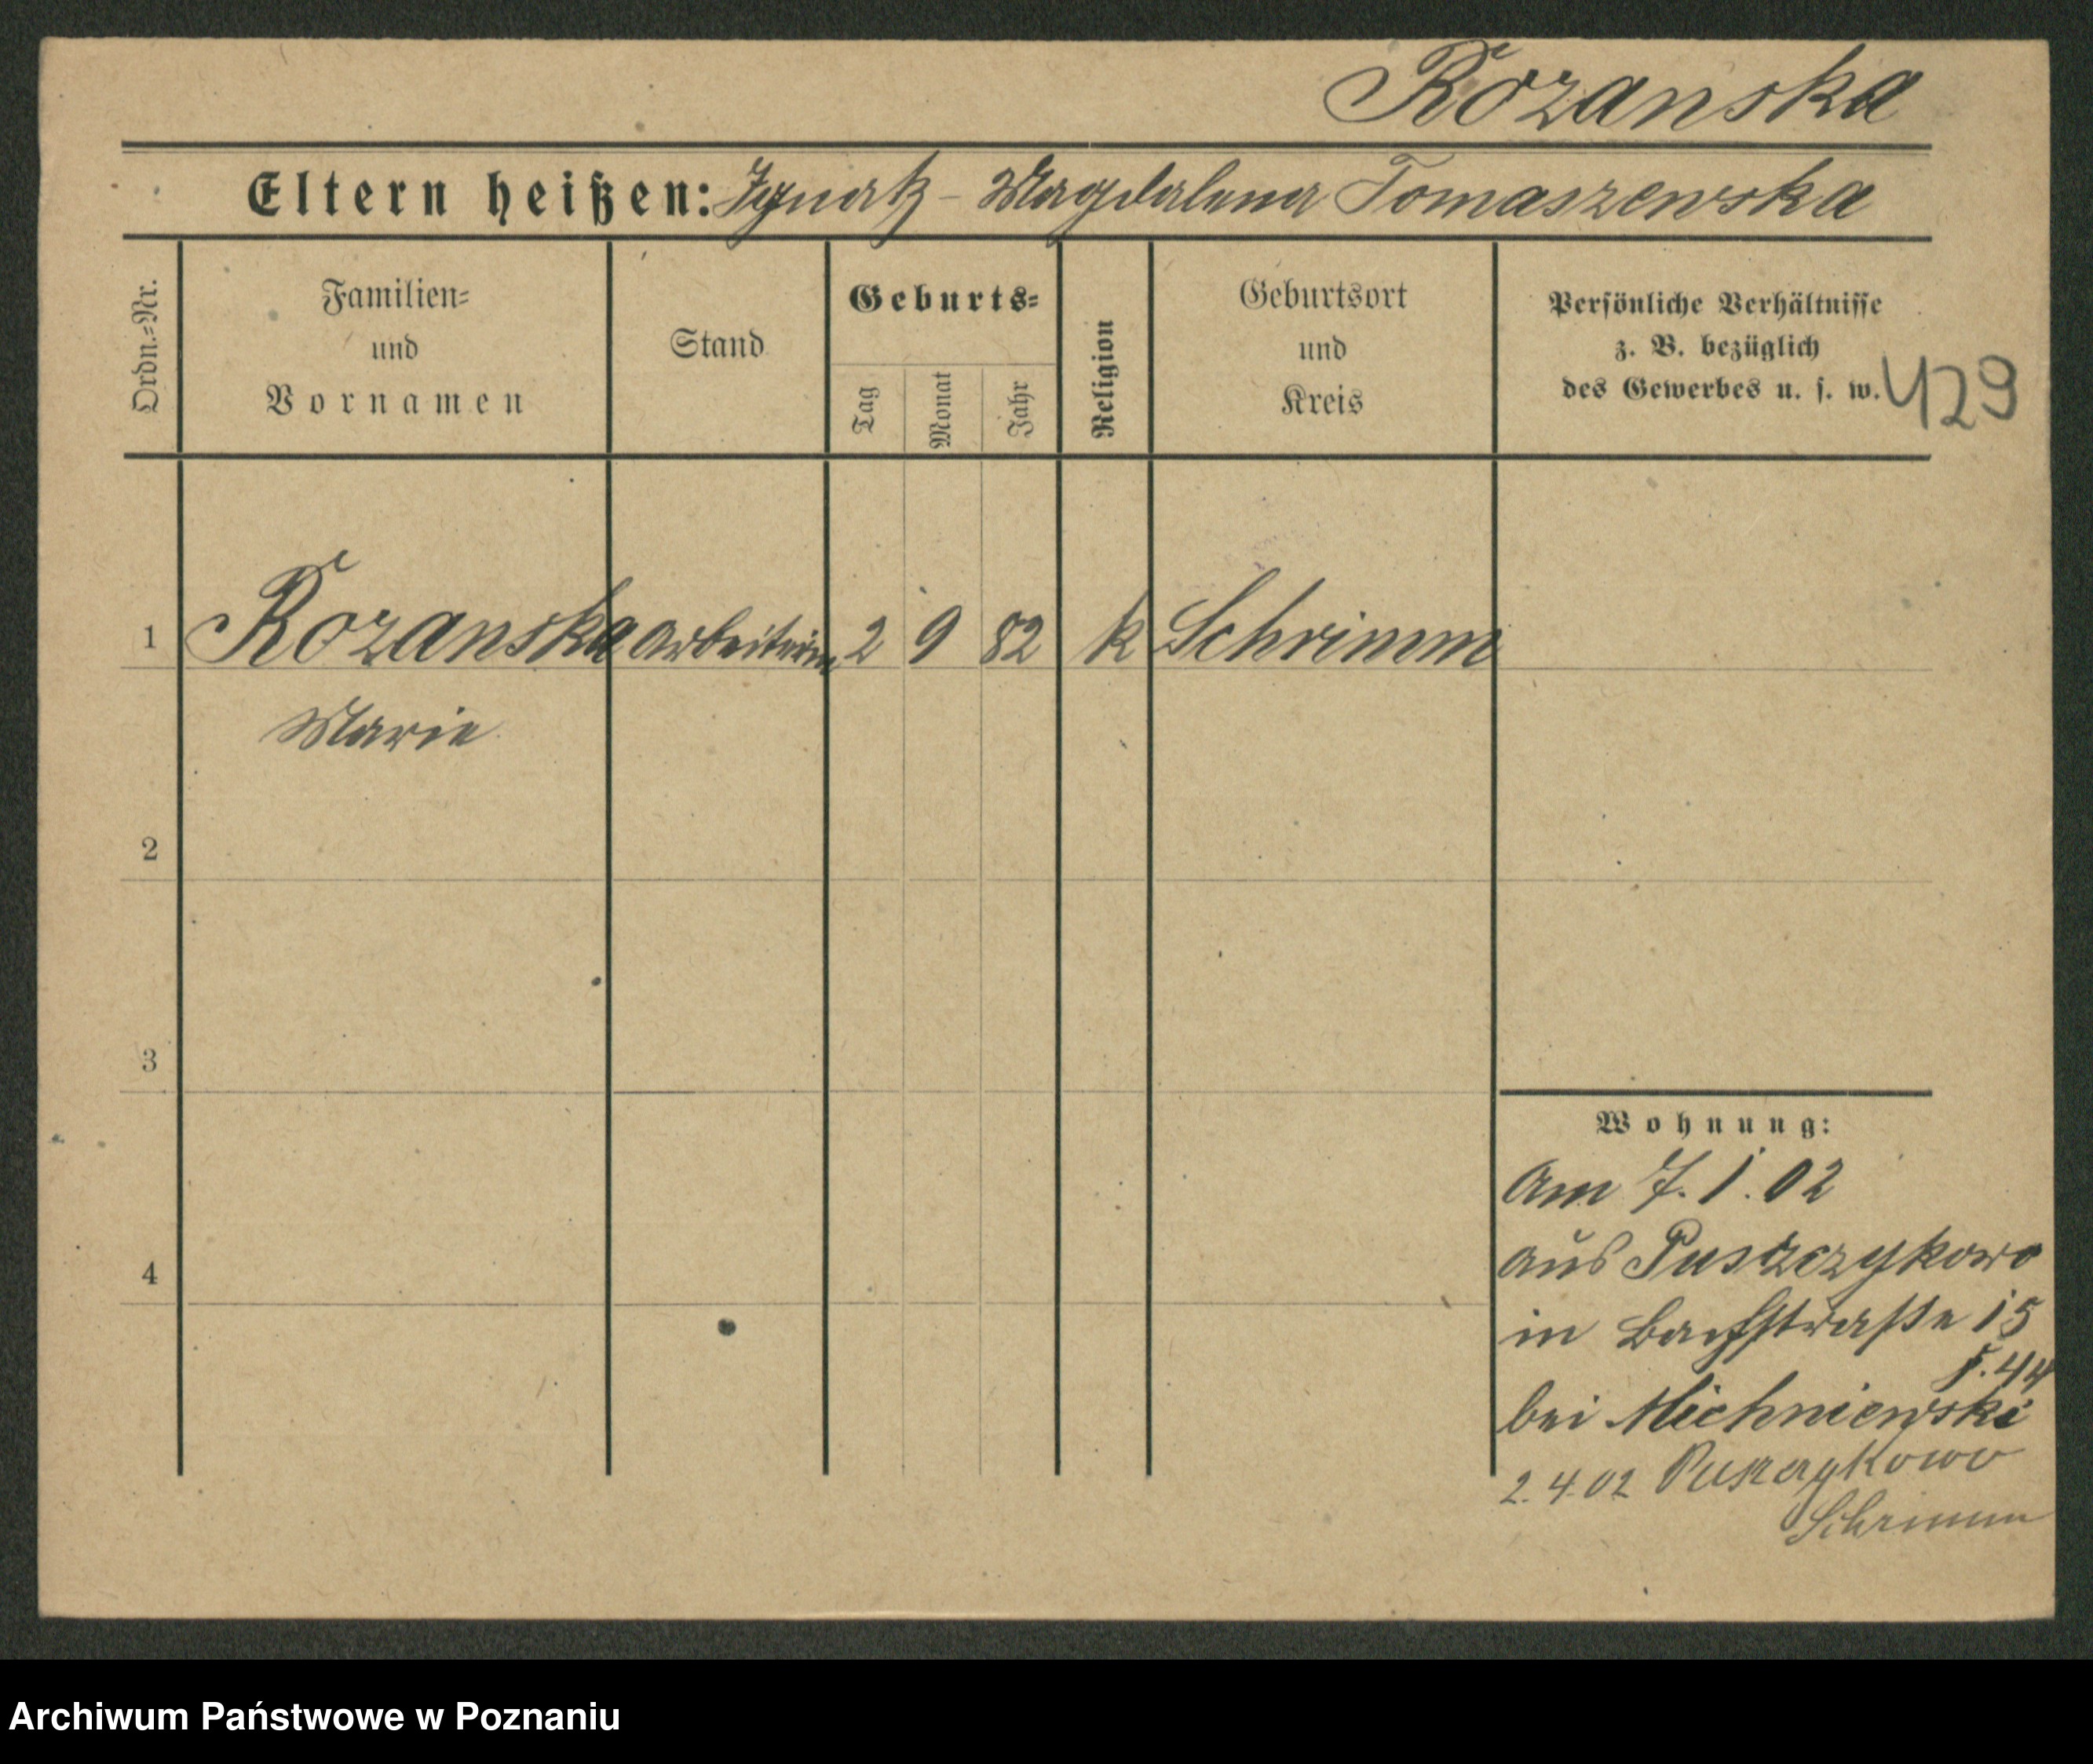 Rozanska
Eltern heißen: Ignatz - Magdalena Tomaszewska
Ordn.=Nr.
Familien=
und
Vornamen
Stand
Geburts=
Tag
Monat
Jahr
Religion
Geburtsort
und
Kreis
Persönliche Verhältnisse
z. B. bezüglich
des Gewerbes u. s. w.
429
1 Rozanska Arbeiterin 2 9 82 k Schrimm
Marie
2
3
4
Wohnung:
Am 7. 1. 02
aus Puszczykowo
in Bachstraße 15
F. 44
bei Michniewski
2.4.02 Puszczykowo
Schrimm
Archiwum Państwowe w Poznaniu